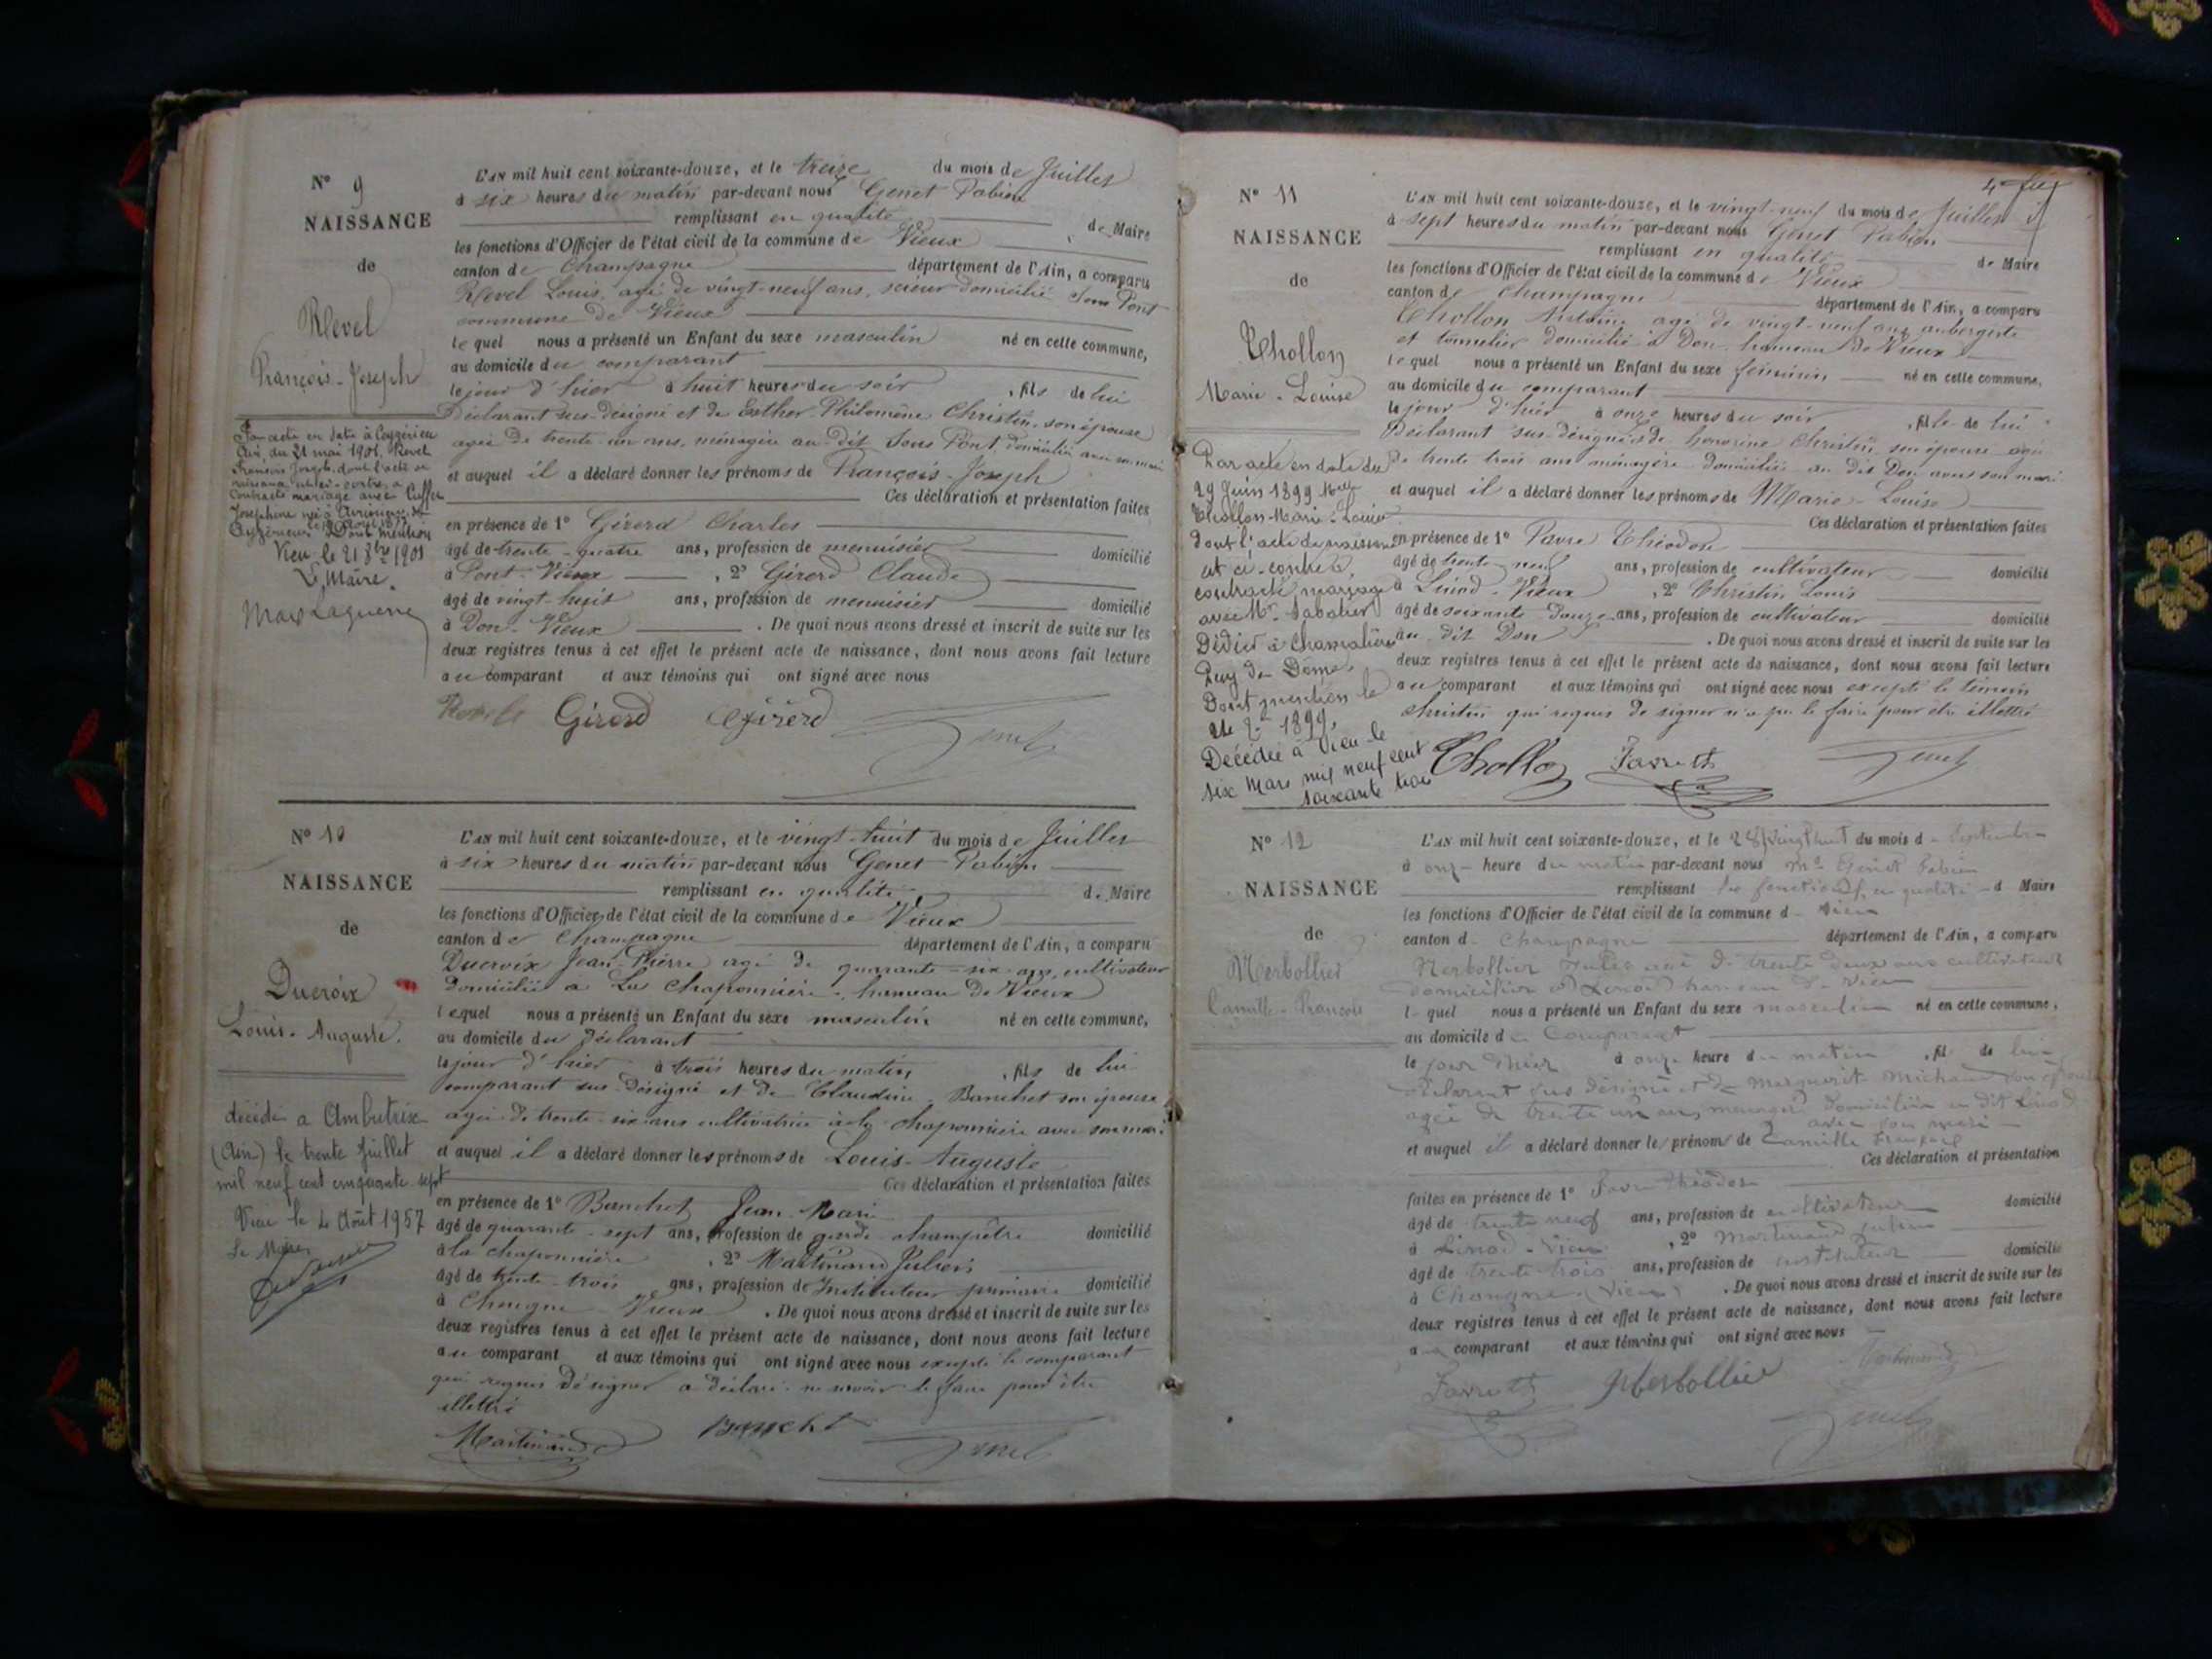 N° 9
NAISSANCE
de
Revel
François-Joseph
Par acte en date à Ceyzérieu
Ain, du 21 mai 1901, Revel
François Joseph, dont l'acte de
naissance est ci-contre, a
Contracté mariage avec
Josephine née à
Dont mention
Vieu le 21 1901
Le Maire
L'AN mil huit cent soixante-douze, et le treize du mois de Juillet
à six heures du matin par-devant nous Genet Fabien
remplissant en qualité de Maire
les fonctions d'Officier de l'état civil de la commune de Vieux
canton de Champagne département de l'Ain, a comparu
Revel Louis, agé de vingt-neuf ans, scieur domicilié Sous Pont
commune de Vieux
lequel nous a présenté un Enfant du sexe masculin né en cette commune,
au domicile du comparant
le jour d'hier à huit heures du soir, fils de lui
Déclarant sus-désigné et de Esther Philomène Christin son épouse
agée de trente-un ans, ménagère au dit Sous Pont, domiciliée avec son mari
et auquel il a déclaré donner les prénoms de François-Joseph
Ces déclaration et présentation faites
en présence de 1° Gérerd Charles
âgé de trente-quatre ans, profession de menuisier domicilié
à Pont-Vieux, 2° Gérerd Claude
âgé de vingt-huit ans, profession de menuisier domicilié
à Don-Vieux. De quoi nous avons dressé et inscrit de suite sur les
deux registres tenus à cet effet le présent acte de naissance, dont nous avons fait lecture
au comparant et aux témoins qui ont signé avec nous
Girerd Girerd
Genet
N° 10
NAISSANCE
de
Ducroix
Louis-Auguste.
décédé à Ambutrix
(Ain) le trente Juillet
mil neuf cent cinquante-sept
Vieu le 4 Août 1957
Le Maire
L'AN mil huit cent soixante-douze, et le vingt-huit du mois de Juillet
à six heures du matin par-devant nous Genet Fabien
remplissant en qualité de Maire
les fonctions d'Officier de l'état civil de la commune de Vieux
canton de Champagne département de l'Ain, a comparu
Ducroix Jean-Pierre agé de quarante-six ans, cultivateur
domicilié à La Chaponnière, hameau de Vieux
lequel nous a présenté un Enfant du sexe masculin né en cette commune,
au domicile du déclarant
le jour d'hier à trois heures du matin, fils de lui
comparant sus-désigné et de Claudine Banchet son épouse
agée de trente-six ans cultivatrice à la Chaponnière avec son mari
et auquel il a déclaré donner les prénoms de Louis-Auguste
Ces déclaration et présentation faites
en présence de 1° Banchet Jean-Marie
âgé de quarante-sept ans, profession de garde champêtre domicilié
à la chaponnière, 2° Martinand Julien
âgé de trente-trois ans, profession de Instituteur primaire domicilié
à Chongne Vieux. De quoi nous avons dressé et inscrit de suite sur les
deux registres tenus à cet effet le présent acte de naissance, dont nous avons fait lecture
au comparant et aux témoins qui ont signé avec nous excepté le comparant
qui requis de signer a déclaré ne savoir le faire pour être
illettré
Martinand Banchet Genet
N° 11
NAISSANCE
de
Thollon
Marie-Louise
Par acte en date du
29 Juin 1899 Melle
Thollon Marie-Louise
dont l'acte de naissance
est ci-contre a
contracté mariage
avec Mr. Sabatier
Didier à Chamalières
Puy de Dôme
Dont mention le
1899,
Décédée à Vieu le
six Mars mil neuf cent
soixante trois
L'AN mil huit cent soixante-douze, et le vingt-neuf du mois de Juillet
à sept heures du matin par-devant nous Genet Fabien
remplissant en qualité de Maire
les fonctions d'Officier de l'état civil de la commune de Vieux
canton de Champagne département de l'Ain, a comparu
Thollon Antoine agé de vingt-neuf ans aubergiste
et tonnelier domicilié à Don hameau de Vieux
lequel nous a présenté un Enfant du sexe féminin né en cette commune,
au domicile du comparant
le jour d'hier à onze heures du soir, fille de lui
Déclarant sus-désigné & de honorine Christin son épouse agée
de trente trois ans ménagère domiciliée au dit Don avec son mari
et auquel il a déclaré donner les prénoms de Marie-Louise
Ces déclaration et présentation faites
en présence de 1° Favre Théodore
âgé de trente neuf ans, profession de cultivateur domicilié
à Linod-Vieux, 2° Christin Louis
âgé de soixante-douze ans, profession de cultivateur domicilié
au dit Don. De quoi nous avons dressé et inscrit de suite sur les
deux registres tenus à cet effet le présent acte de naissance, dont nous avons fait lecture
au comparant et aux témoins qui ont signé avec nous excepté le témoin
Christin qui requis de signer n'a pu le faire pour être illettré
Thollon Favre th Genet
N° 12
NAISSANCE
de
Merbollier
Camille-François
L'AN mil huit cent soixante-douze, et le 28 vingt huit du mois d Septembre
à onze heure du matin par-devant nous Mr Genet Fabien
remplissant les fonctions en qualité d Maire
les fonctions d'Officier de l'état civil de la commune d Vieu
canton d Champagne département de l'Ain, a comparu
Merbollier Jules agé de trente deux ans cultivateur
domicilié à Linod hameau de Vieu
l quel nous a présenté un Enfant du sexe masculin né en cette commune,
au domicile du Comparant
le jour d'hier à onze heure du matin, fil de lui
déclarant sus désigné et de Marguerite Michaud son épouse
agée de trente un ans menagère domiciliée au dit Linod
avec son mari
et auquel il a déclaré donner le prénom de Camille François
Ces déclaration et présentation
faites en présence de 1° Favre Théodore
âgé de trente neuf ans, profession de cultivateur domicilié
à Linod-Vieu, 2° Martinand Julien
âgé de trente trois ans, profession de instituteur domicilié
à Chongne (Vieu). De quoi nous avons dressé et inscrit de suite sur les
deux registres tenus à cet effet le présent acte de naissance, dont nous avons fait lecture
a comparant et aux témoins qui ont signé avec nous
Favre th Merbollier Martinand
Genet